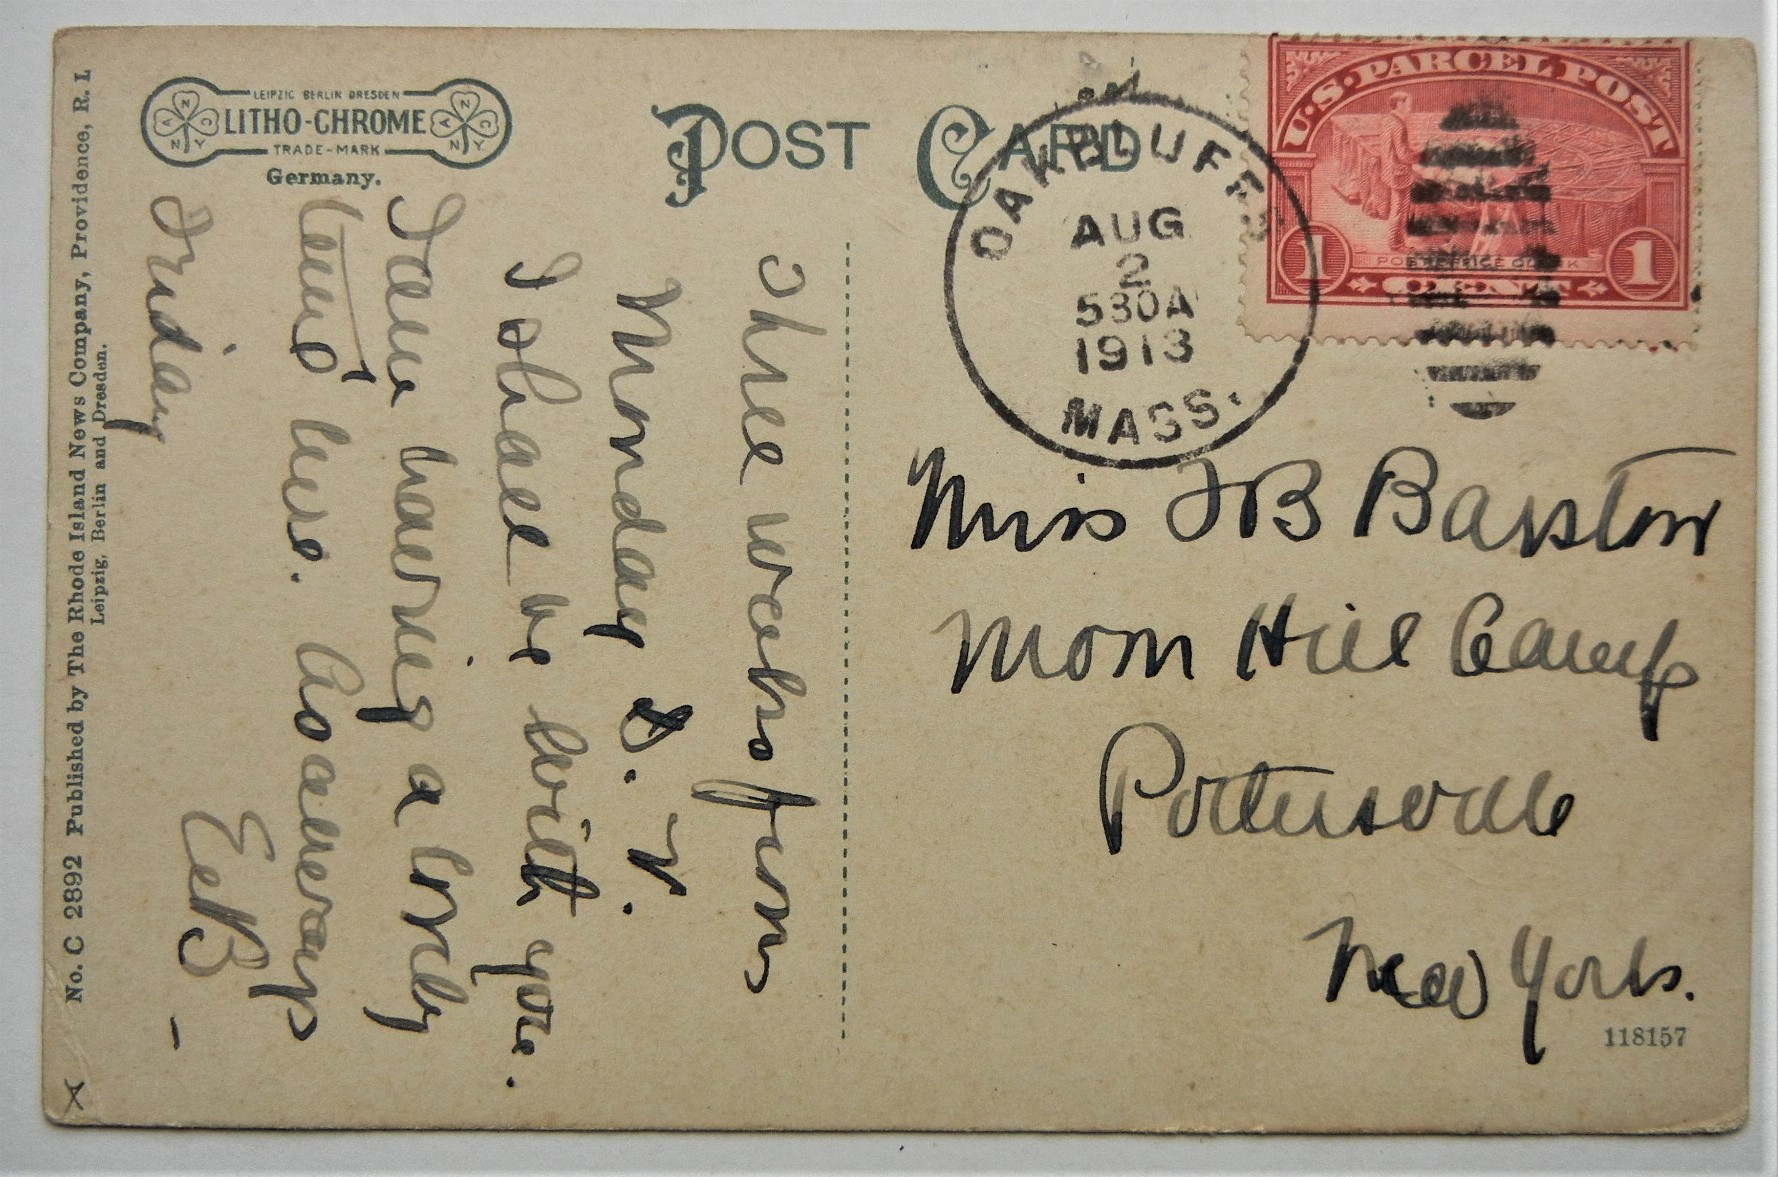 No. C 2892 Published by The Rhode Island News Company, Providence, R. I.
Leipzig, Berlin and Dresden.
LEIPZIG BERLIN DRESDEN
LITHO-CHROME
TRADE-MARK
N
A C
N Y
N
A C
N Y
Germany.
POST CARD
OAK BLUFFS
AUG
2
530A
1913
MASS.
U.S. PARCEL POST
POST OFFICE CLERK
1 CENT 1
Three weeks from
Monday D. V.
I shall be with you.
I am having a lovely
time here. As always
EeB –
Friday
Miss B Barstow
Moon Hill Camp
Pottersville
New York.
118157
X